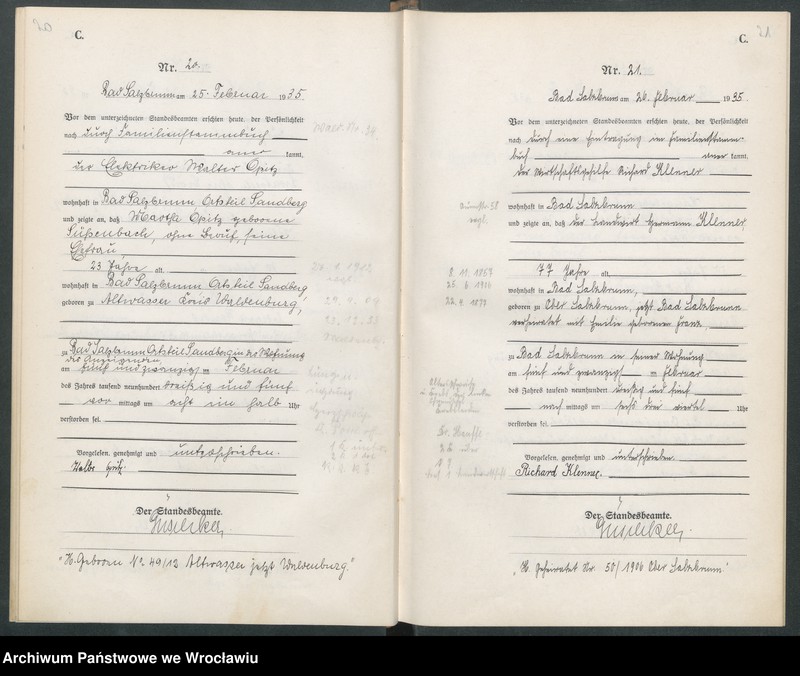 20
C.
Nr. 20.
Bad Salzbrunn am 25. Februar 1935.
Vor dem unterzeichneten Standesbeamten erschien heute, der Persönlichkeit
nach durch Familienstammbuch
aner kannt,
der Elektriker Walter Opitz
wohnhaft in Bad Salzbrunn Ortsteil Sandberg
und zeigte an, daß Martha Opitz geborene
Süßenbach, ohne Beruf, seine
Ehefrau,
23 Jahre alt
wohnhaft in Bad Salzbrunn Ortsteil Sandberg,
geboren zu Altwasser Kreis Waldenburg,
zu Bad Salzbrunn Ortsteil Sandberg in der Wohnung
des Anzeigenden
am fünf und zwanzigsten Februar
des Jahres tausend neunhundert dreißig und fünf
vor mittags um acht ein halb Uhr
verstorben sei.
Vorgelesen, genehmigt und unterschrieben.
Walter Opitz.
Der Standesbeamte.
"H. Geboren No. 49/12 Altwasser jetzt Waldenburg."
21
C.
Nr. 21.
Bad Salzbrunn am 26. Februar 1935.
Vor dem unterzeichneten Standesbeamten erschien heute, der Persönlichkeit
nach durch eine Eintragung im Familienstamm-
buch aner kannt,
der Wirtschaftsgehilfe Richard Klenner
wohnhaft in Bad Salzbrunn
und zeigte an, daß der Landwirt Hermann Klenner,
77 Jahre alt
wohnhaft in Bad Salzbrunn,
geboren zu Ober Salzbrunn, jetzt Bad Salzbrunn
verheiratet mit Emilie geborenen Franz,
zu Bad Salzbrunn in seiner Wohnung
am fünf und zwanzigsten Februar
des Jahres tausend neunhundert dreißig und fünf
nach mittags um sechs drei viertel Uhr
verstorben sei.
Vorgelesen, genehmigt und unterschrieben.
Richard Klenner.
Der Standesbeamte.
"H. Geheiratet Nr. 50/1906 Ober Salzbrunn."
Archiwum Państwowe we Wrocławiu